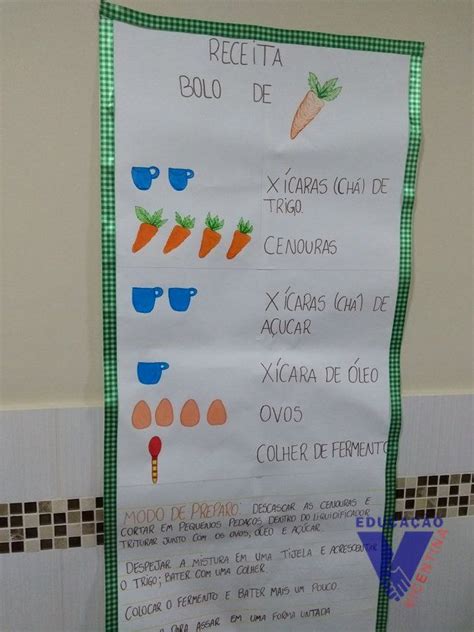 RECEITA
BOLO DE
XÍCARAS (CHÁ) DE
TRIGO.
CENOURAS
XÍCARAS (CHÁ) DE
AÇUCAR
XÍCARA DE ÓLEO
OVOS
COLHER DE FERMENTO
MODO DE PREPARO: DESCASCAR AS CENOURAS E
CORTAR EM PEQUENOS PEDAÇOS DENTRO DO LIQUIDIFICADOR
TRITURAR JUNTO COM OS OVOS, ÓLEO E AÇÚCAR.
DESPEJAR A MISTURA EM UMA TIJELA E ACRESCENTAR
O TRIGO; BATER COM UMA COLHER.
COLOCAR O FERMENTO E BATER MAIS UM POUCO.
PARA ASSAR EM UMA FORMA UNTADA
EDUCAÇÃO
VICENTINA